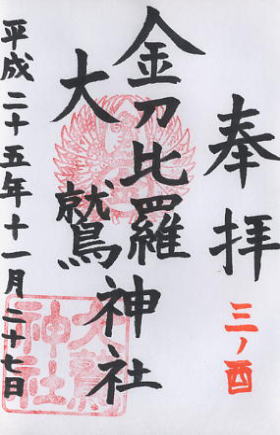 奉拝
三ノ酉
金刀比羅
大鷲神社
平成二十五年十一月二十七日
大鷲神社